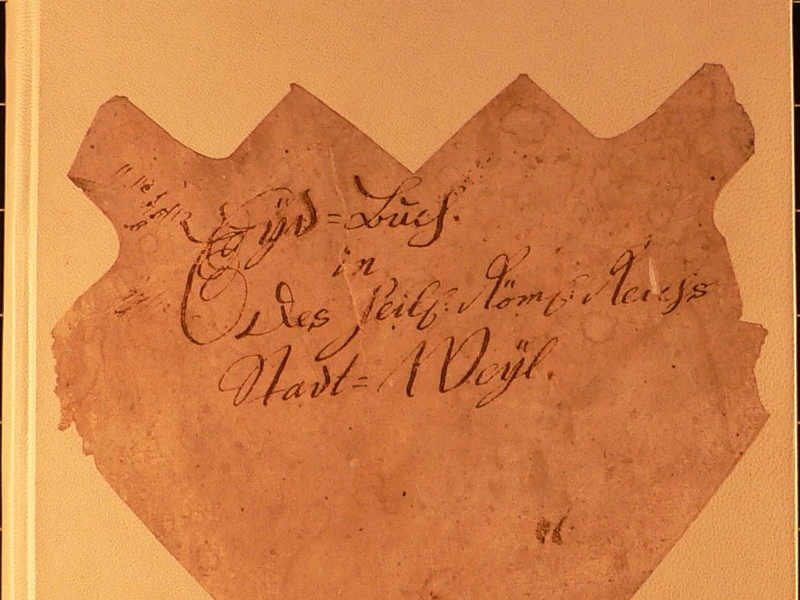 Eÿd=Buch.
in
Des Heilg: Röms: Reichs
Stadt=Weÿl.